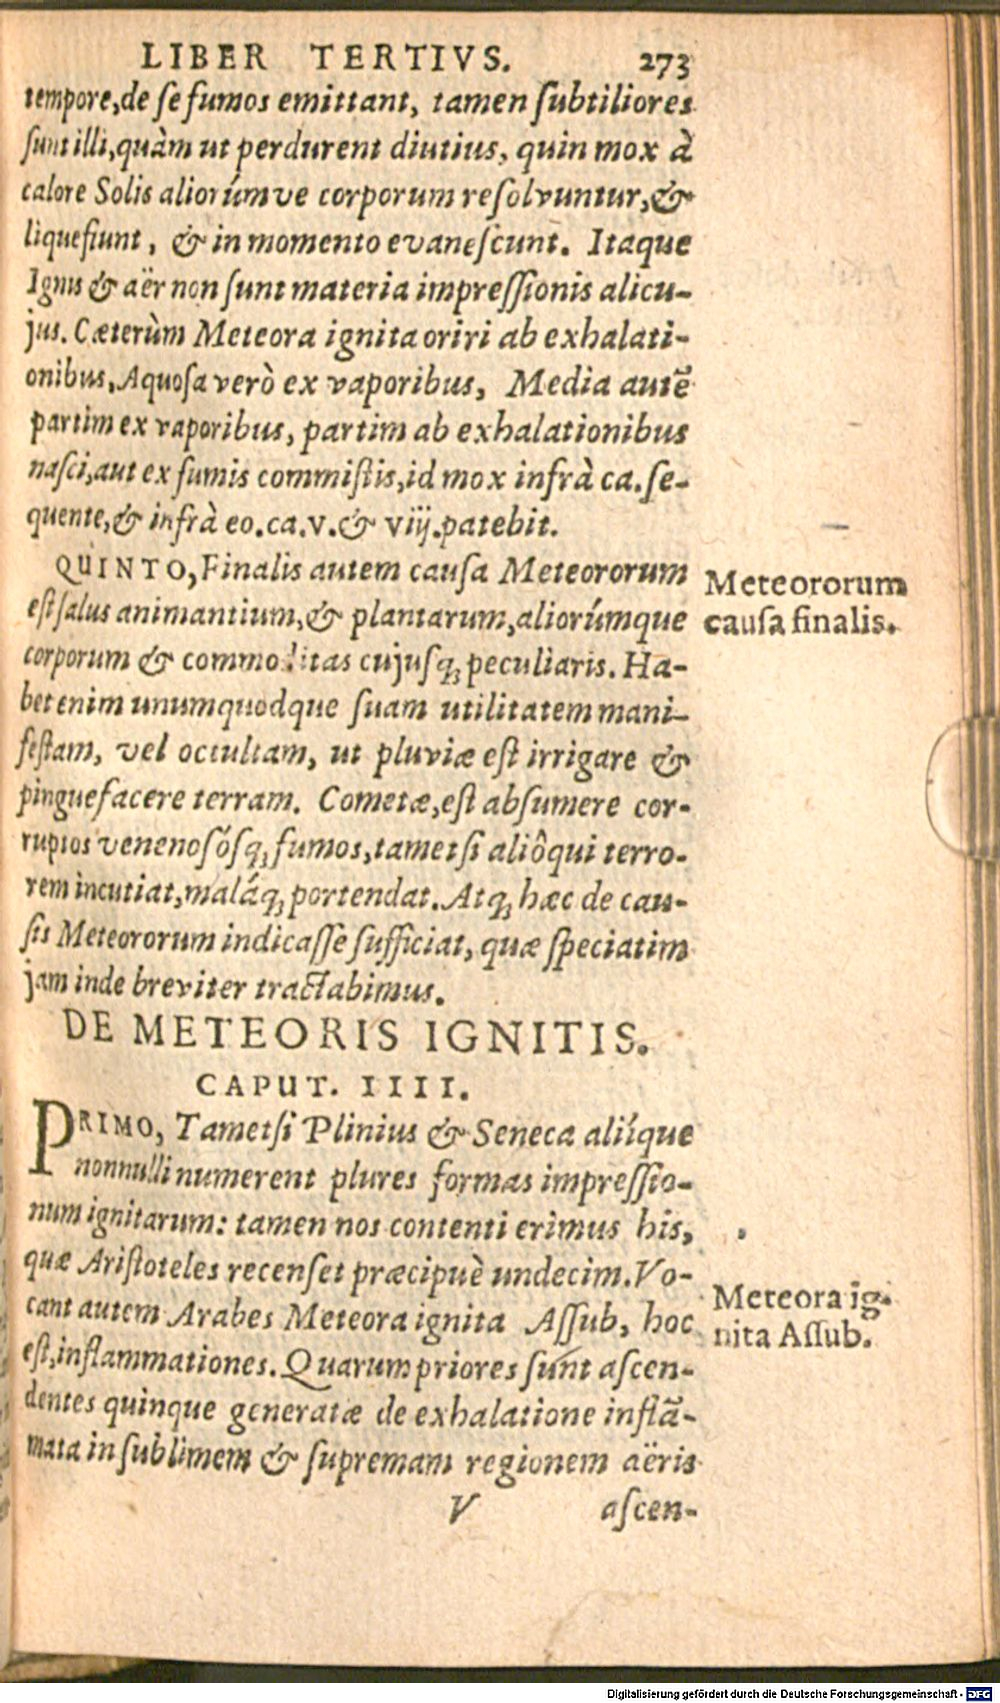 LIBER TERTIVS. 273
tempore,de se fumos emittant, tamen subtiliores
sunt illi,quàm ut perdurent diutius, quin mox à
calore Solis aliorúmve corporum resolvuntur,&
liquefiunt, & in momento evanescunt. Itaque
Ignis & aër non sunt materia impressionis alicu-
jus. Cæterùm Meteora ignita oriri ab exhalati-
onibus, Aquosa verò ex vaporibus, Media autē
partim ex vaporibus, partim ab exhalationibus
nasci,aut ex fumis commistis,id mox infrà ca.se-
quente,& infrà eo.ca.v.& viij.patebit.
QUINTO, Finalis autem causa Meteororum
est salus animantium,& plantarum,aliorúmque
corporum & commoditas cujusq; peculiaris. Ha-
bet enim unumquodque suam utilitatem mani-
festam, vel occultam, ut pluviæ est irrigare &
pinguefacere terram. Cometæ,est absumere cor-
ruptos venenosósq; fumos,tametsi aliôqui terro-
rem incutiat,maláq; portendat. Atq; hæc de cau-
sis Meteororum indicasse sufficiat, quæ speciatim
jam inde breviter tractabimus.
Meteororum
causa finalis.
DE METEORIS IGNITIS.
CAPUT. IIII.
PRIMO, Tametsi Plinius & Seneca aliíque
nonnulli numerent plures formas impressio-
num ignitarum: tamen nos contenti erimus his,
quæ Aristoteles recenset præcipuè undecim. Vo-
cant autem Arabes Meteora ignita Assub, hoc
est,inflammationes. Quarum priores sunt ascen-
dentes quinque generatæ de exhalatione inflā-
mata in sublimem & supremam regionem aëris
Meteora ig-
nita Assub.
V ascen-
Digitalisierung gefördert durch die Deutsche Forschungsgemeinschaft - DFG